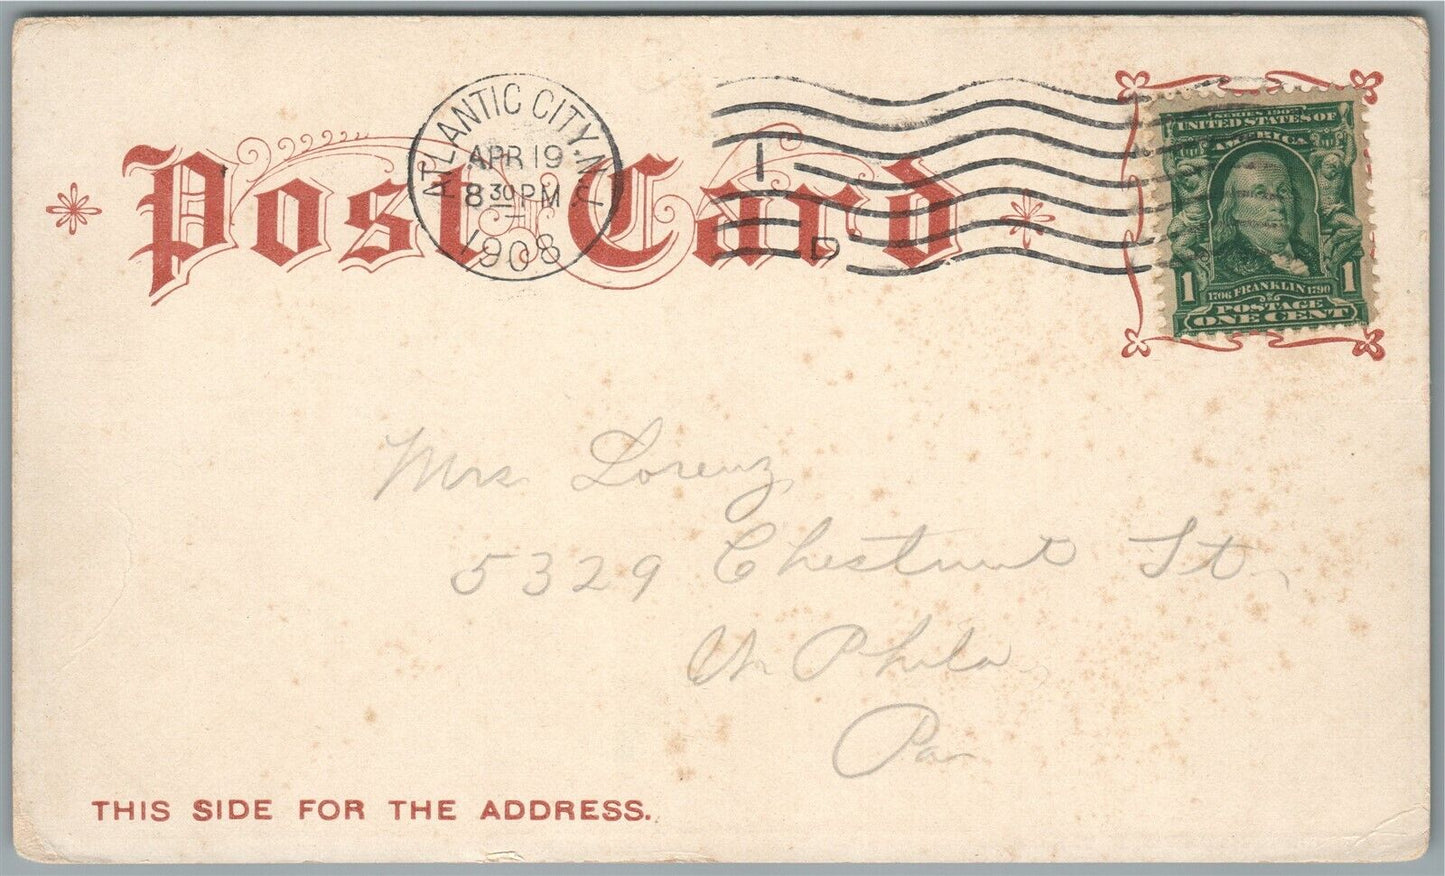 ATLANTIC CITY. N.J.
APR 19
8 30 PM
1908
I
D
Post Card
UNITED STATES OF
AMERICA
1706 FRANKLIN 1790
POSTAGE
1 ONE CENT 1
Mrs. Lorenz
5329 Chestnut St.
W. Phila
Pa
THIS SIDE FOR THE ADDRESS.